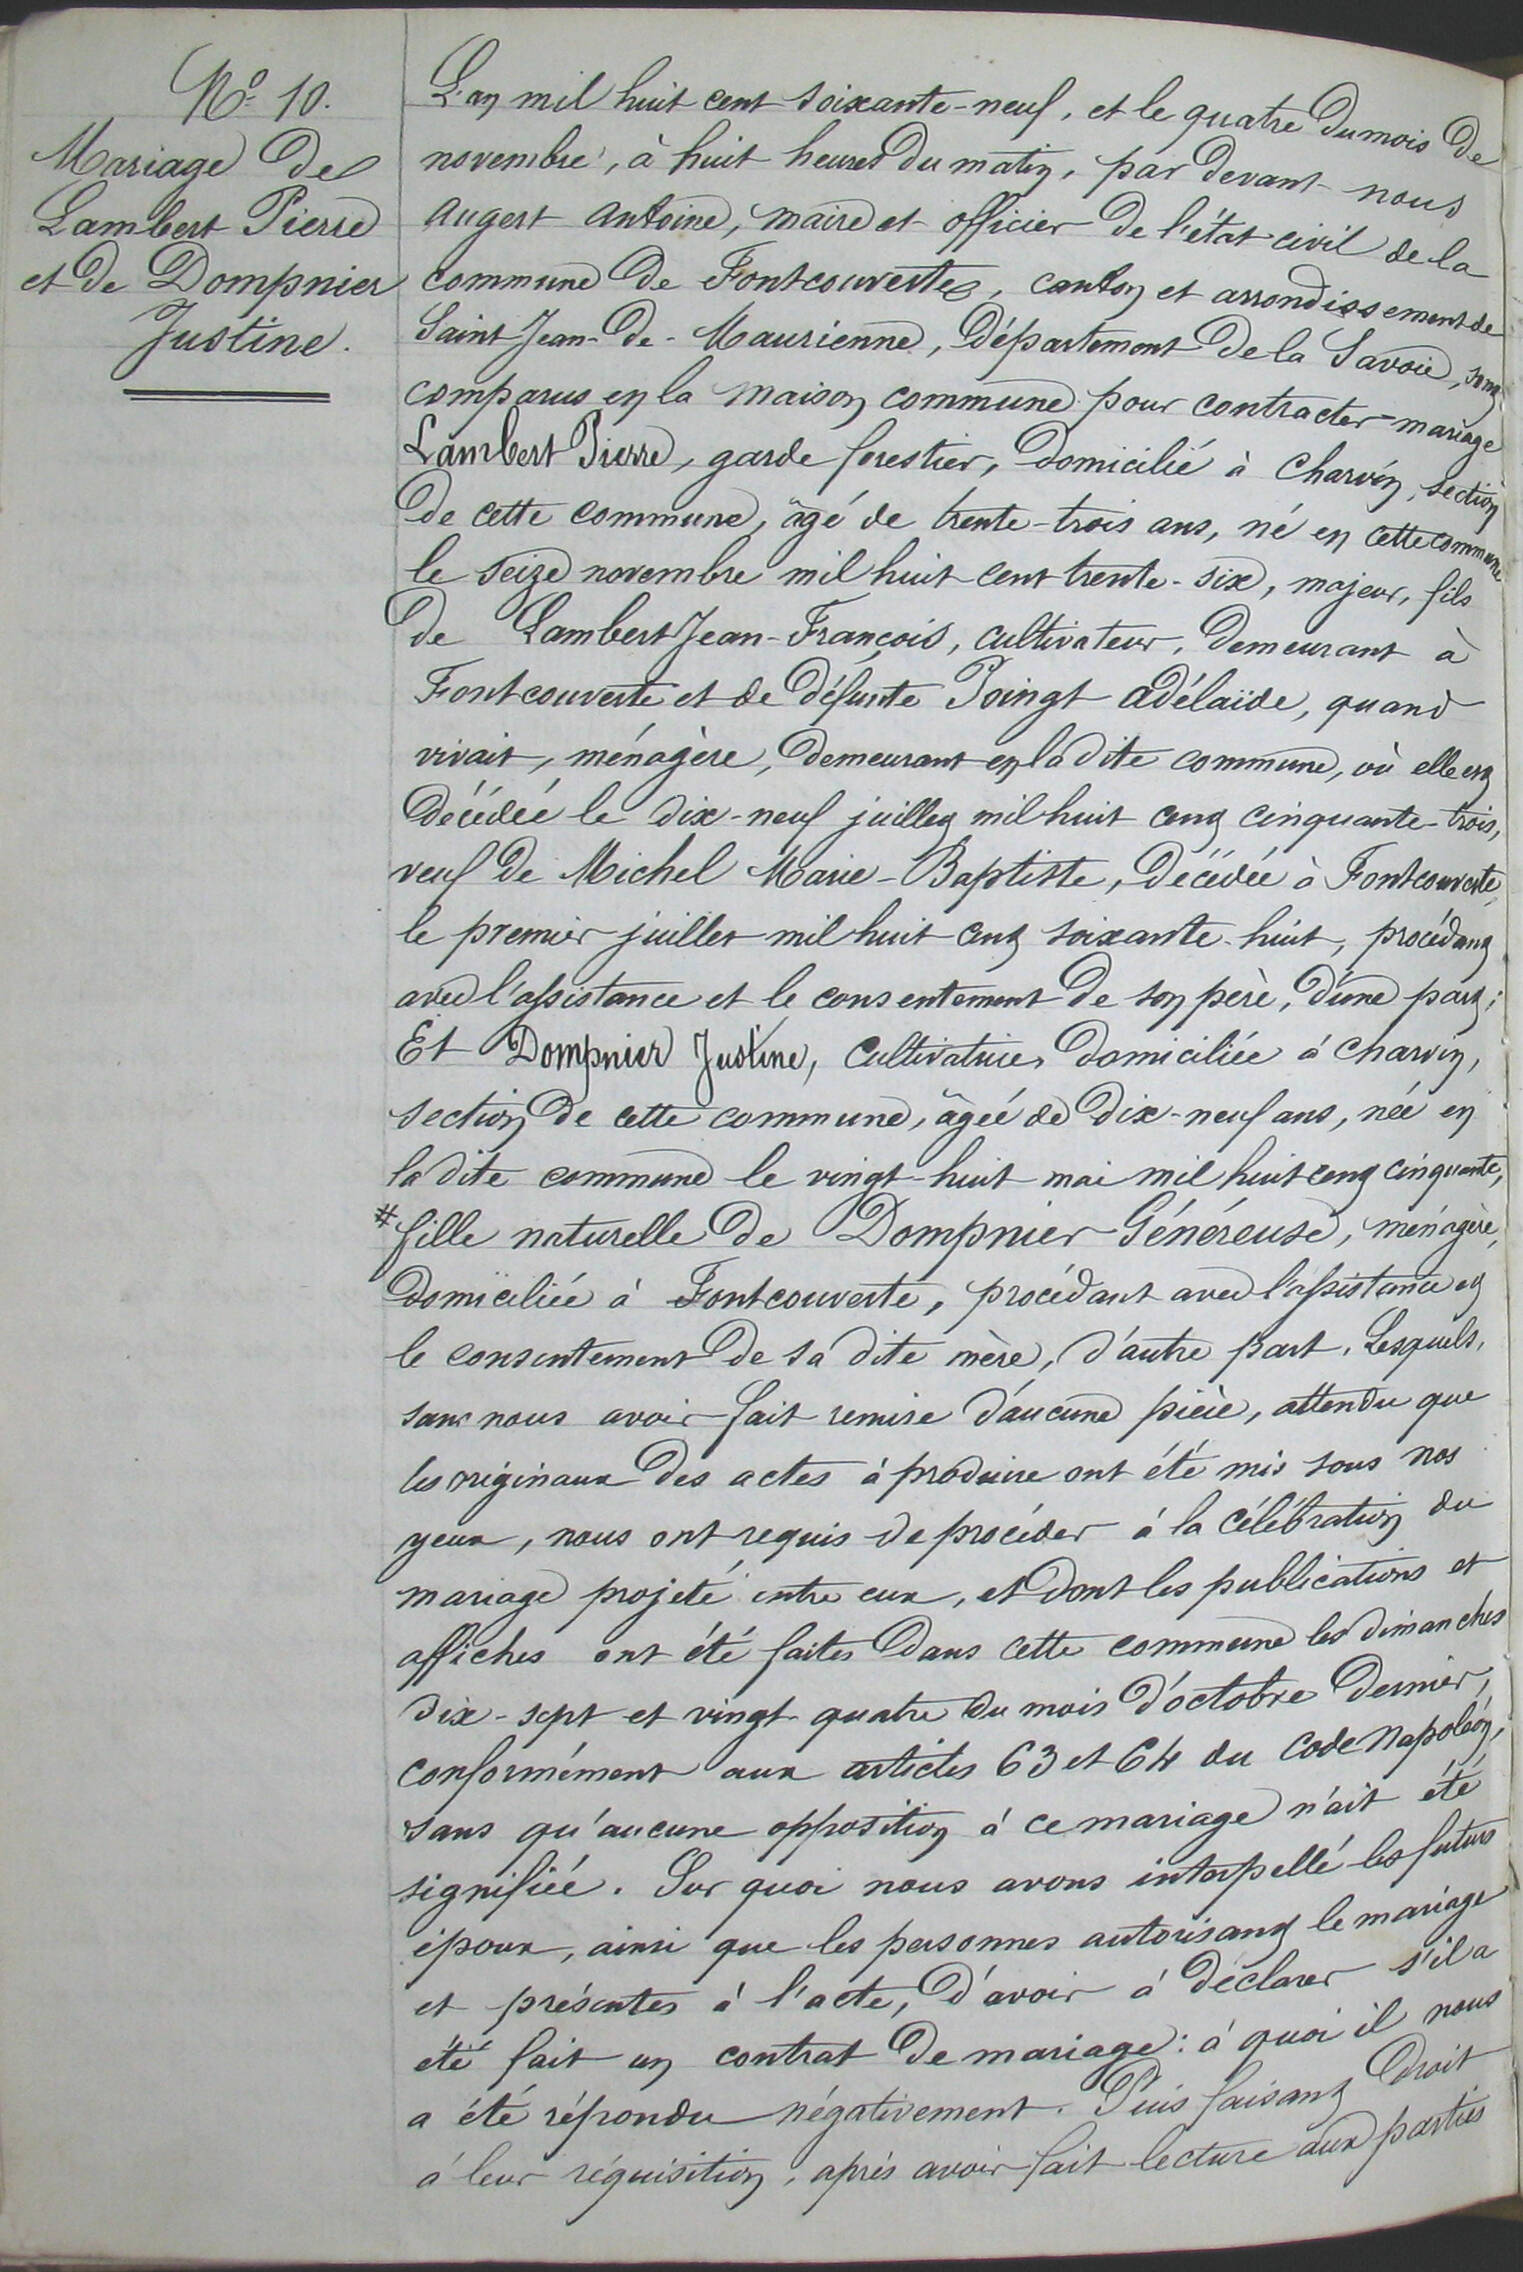 N° 10.
Mariage de
Lambert Pierre
et de Dompnier
Justine.
L'an mil huit cent soixante-neuf, et le quatre du mois de
novembre, à huit heures du matin, par devant nous
Augert Antoine, maire et officier de l'état civil de la
commune de Fontcouverte, canton et arrondissement de
Saint Jean-de-Maurienne, département de la Savoie, sont
comparus en la maison commune pour contracter mariage
Lambert Pierre, garde forestier, domicilié à Charvin, section
de cette commune, âgé de trente-trois ans, né en cette commune
le seize novembre mil huit cent trente-six, majeur, fils
de Lambert Jean-François, cultivateur, demeurant à
Fontcouverte et de défunte Poingt Adélaïde, quand
vivait, ménagère, demeurant en la dite commune, où elle est
décédée le dix-neuf juillet mil huit cent cinquante-trois,
veuf de Michel Marie-Baptiste, décédée à Fontcouverte,
le premier juillet mil huit cent soixante-huit, procédant
avec l'assistance et le consentement de son père, d'une part;
Et Dompnier Justine, cultivatrice, domiciliée à Charvin,
section de cette commune, âgée de dix-neuf ans, née en
la dite commune le vingt-huit mai mil huit cent cinquante,
# fille naturelle de Dompnier Généreuse, ménagère,
domiciliée à Fontcouverte, procédant avec l'assistance et
le consentement de sa dite mère, d'autre part. Lesquels,
sans nous avoir fait remise d'aucune pièce, attendu que
les originaux des actes à produire ont été mis sous nos
yeux, nous ont requis de procéder à la célébration du
mariage projeté entre eux, et dont les publications et
affiches ont été faites dans cette commune les dimanches
dix-sept et vingt-quatre du mois d'octobre dernier,
conformément aux articles 63 et 64 du code Napoléon,
sans qu'aucune opposition à ce mariage n'ait été
signifiée. Sur quoi nous avons interpellé les futurs
époux, ainsi que les personnes autorisant le mariage
et présentes à l'acte, d'avoir à déclarer s'il a
été fait un contrat de mariage: à quoi il nous
a été répondu négativement. Puis faisant droit
à leur réquisition, après avoir fait lecture aux parties